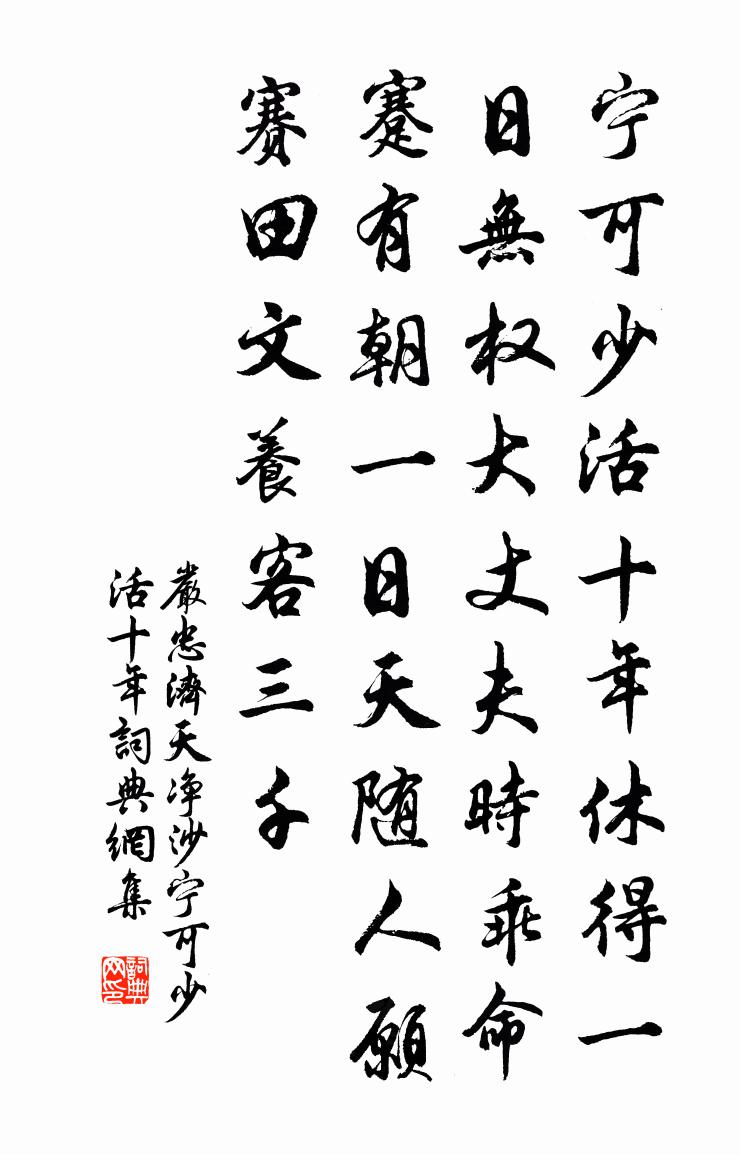 宁可少活十年休得一
日無权大丈夫時乖命
蹇有朝一日天随人願
賽田文養客三千
嚴忠濟天净沙宁可少
活十年詞典網集
詞典
网印